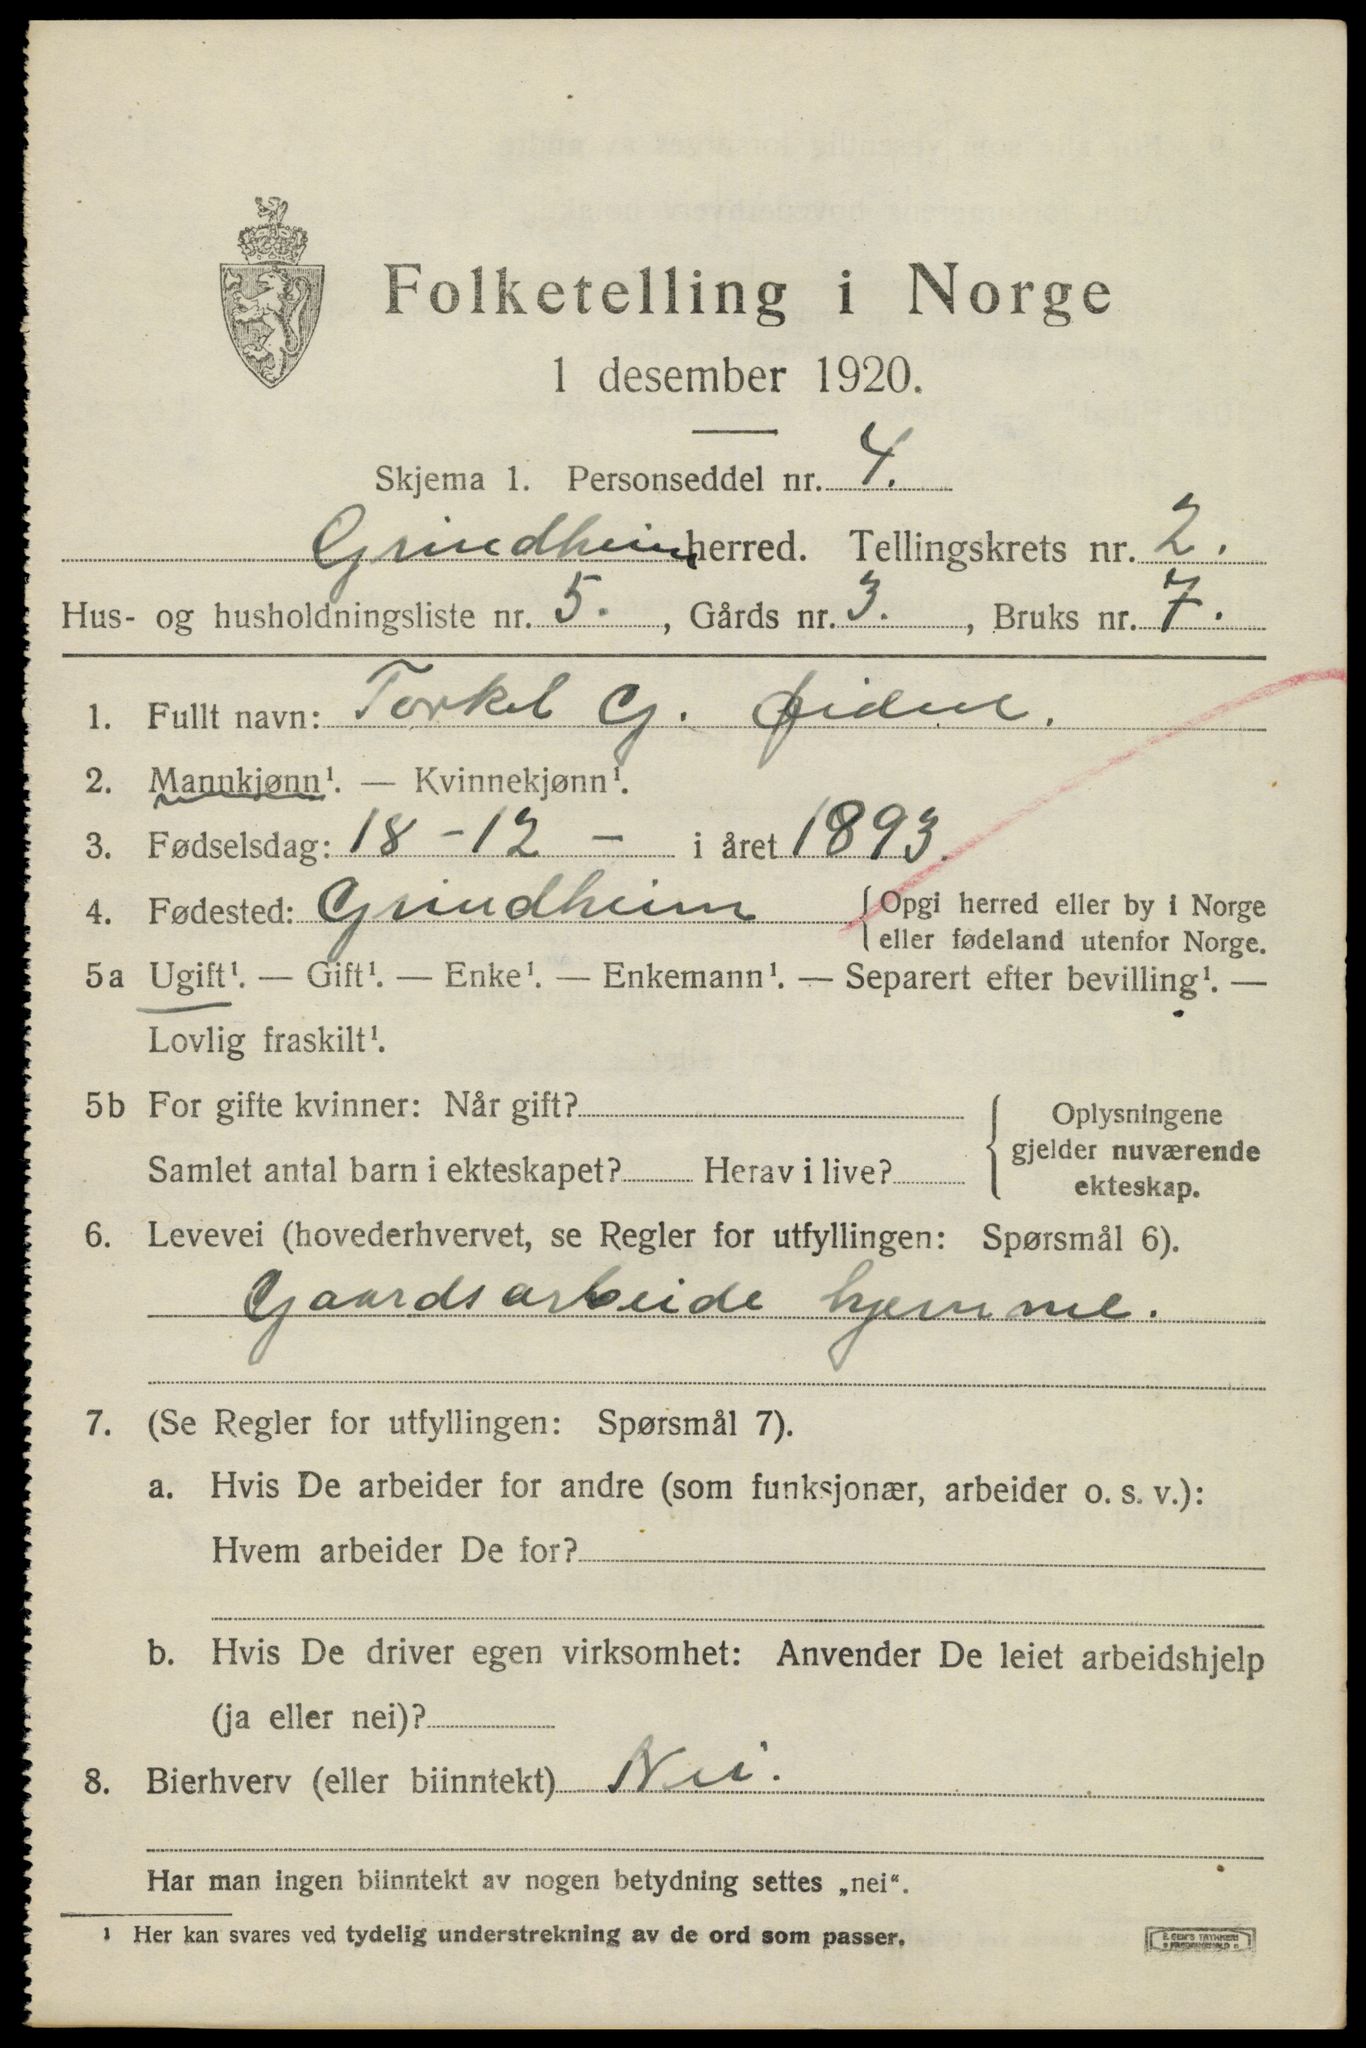 Folketelling i Norge
1 desember 1920.
Skjema 1. Personseddel nr. 4.
Grindheim herred. Tellingskrets nr. 2.
Hus- og husholdningsliste nr. 5. , Gårds nr. 3. , Bruks nr. 7.
1. Fullt navn: Torkel G. Øidne.
2. Mannkjønn¹. — Kvinnekjønn¹.
3. Fødselsdag: 18 - 12 - i året 1893.
4. Fødested: Grindheim { Opgi herred eller by i Norge
eller fødeland utenfor Norge.
5a Ugift¹. — Gift¹. — Enke¹. — Enkemann¹. — Separert efter bevilling¹. —
Lovlig fraskilt¹.
5b For gifte kvinner: Når gift?
Samlet antal barn i ekteskapet? Herav i live?
{ Oplysningene
gjelder nuværende
ekteskap.
6. Levevei (hovederhvervet, se Regler for utfyllingen: Spørsmål 6).
Gaardsarbeide hjemme.
7. (Se Regler for utfyllingen: Spørsmål 7).
a. Hvis De arbeider for andre (som funksjonær, arbeider o. s. v.):
Hvem arbeider De for?
b. Hvis De driver egen virksomhet: Anvender De leiet arbeidshjelp
(ja eller nei)?
8. Bierhverv (eller biinntekt) Nei.
Har man ingen biinntekt av nogen betydning settes „nei“.
¹ Her kan svares ved tydelig understrekning av de ord som passer.